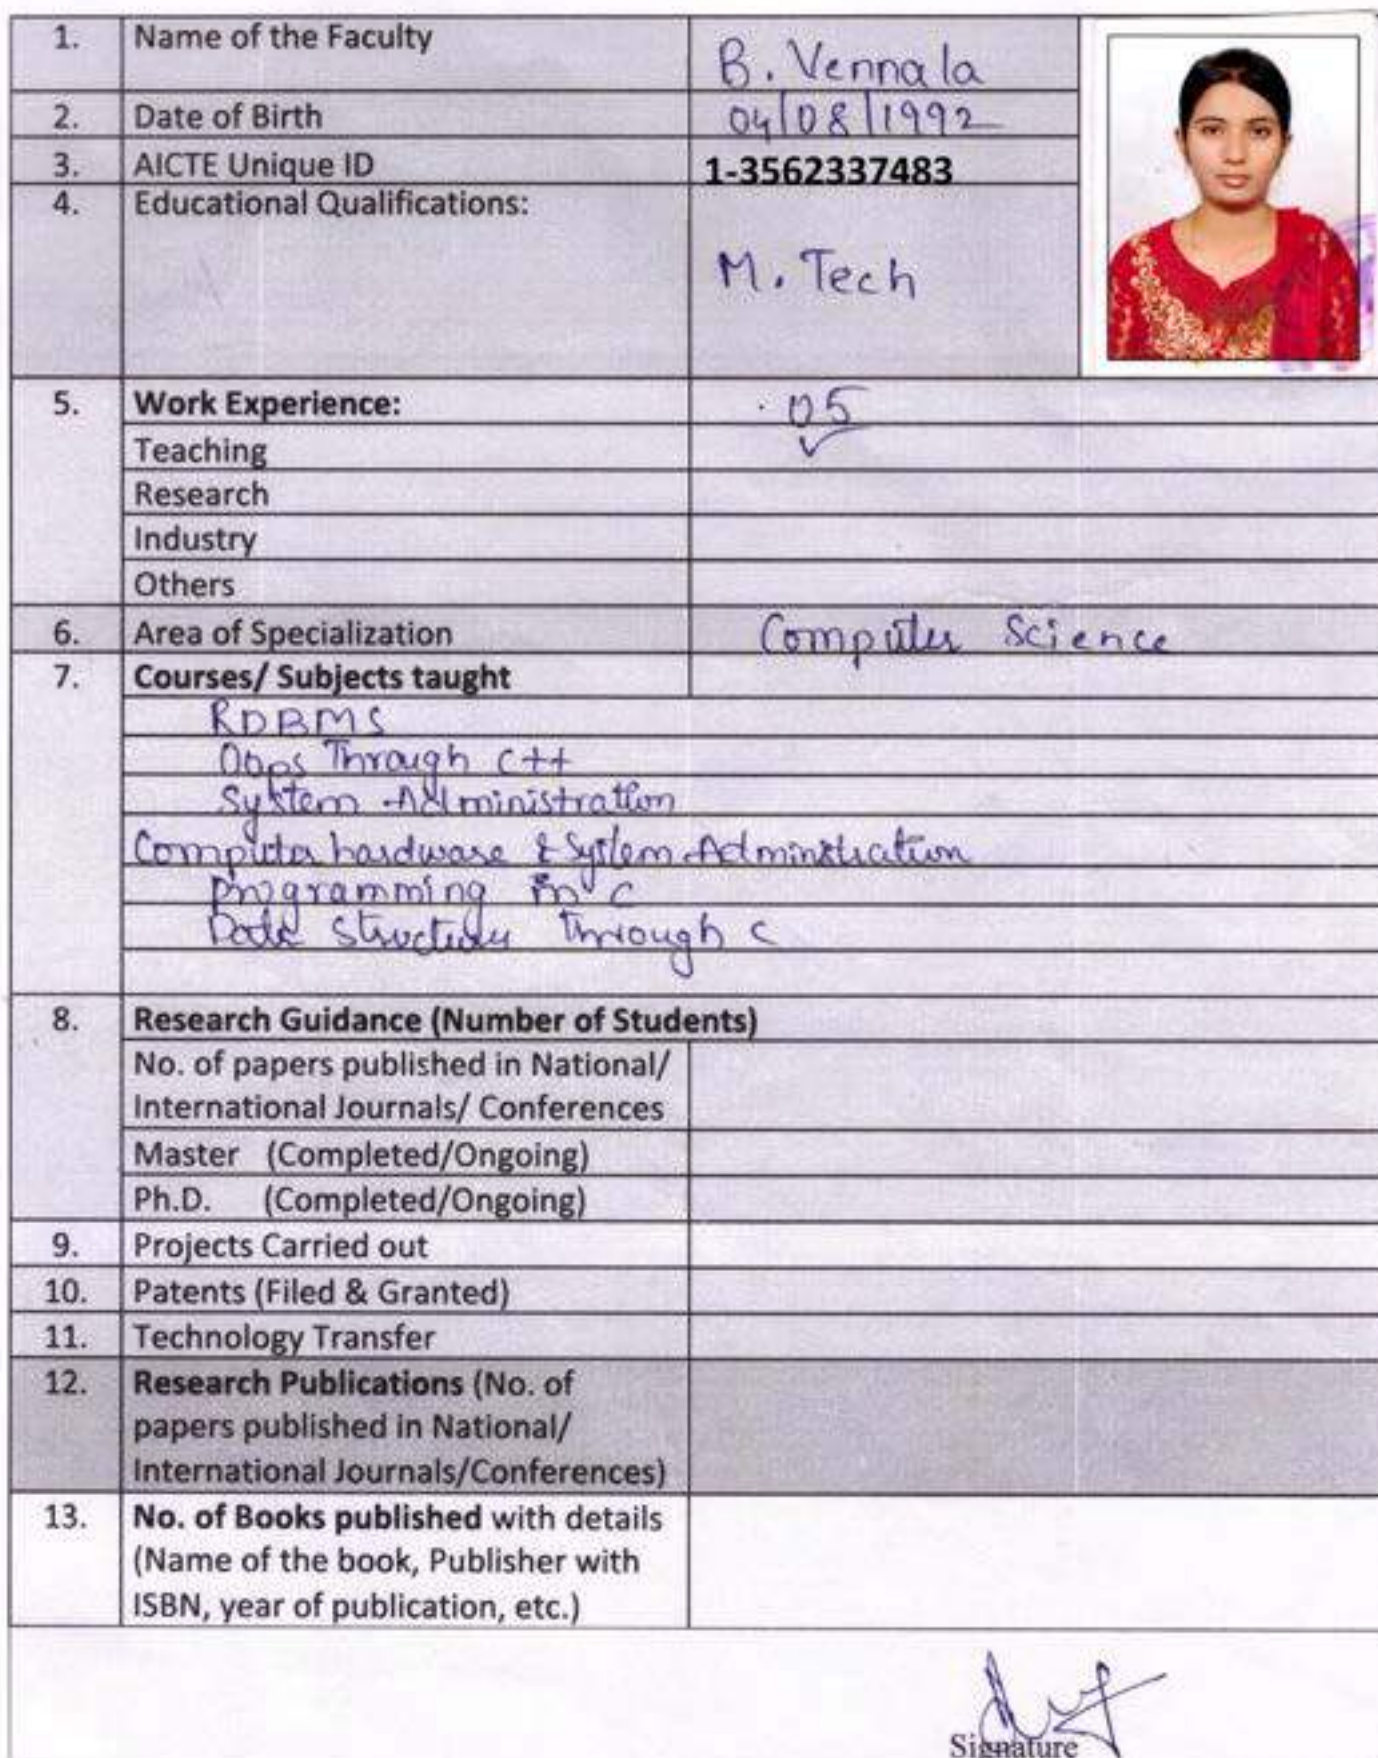 1. Name of the Faculty B. Vennala
2. Date of Birth 04/08/1992
3. AICTE Unique ID 1-3562337483
4. Educational Qualifications: M. Tech
5. Work Experience: 05
Teaching ✓
Research
Industry
Others
6. Area of Specialization Computer Science
7. Courses/ Subjects taught
RDBMS
Oops Through C++
System Administration
Computer hardware & System Administration
Programming in C
Data Structure Through C
8. Research Guidance (Number of Students)
No. of papers published in National/
International Journals/ Conferences
Master (Completed/Ongoing)
Ph.D. (Completed/Ongoing)
9. Projects Carried out
10. Patents (Filed & Granted)
11. Technology Transfer
12. Research Publications (No. of
papers published in National/
International Journals/Conferences)
13. No. of Books published with details
(Name of the book, Publisher with
ISBN, year of publication, etc.)
Signature